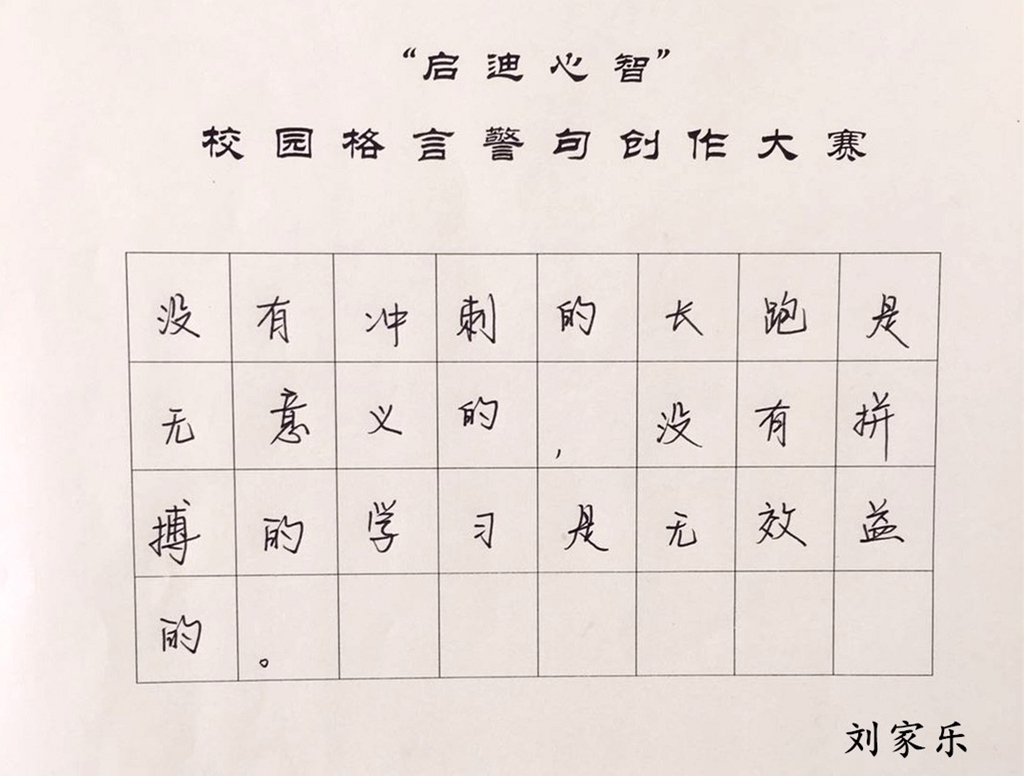 “启迪心智”
校园格言警句创作大赛
没有冲刺的长跑是
无意义的，没有拼
搏的学习是无效益
的。
刘家乐